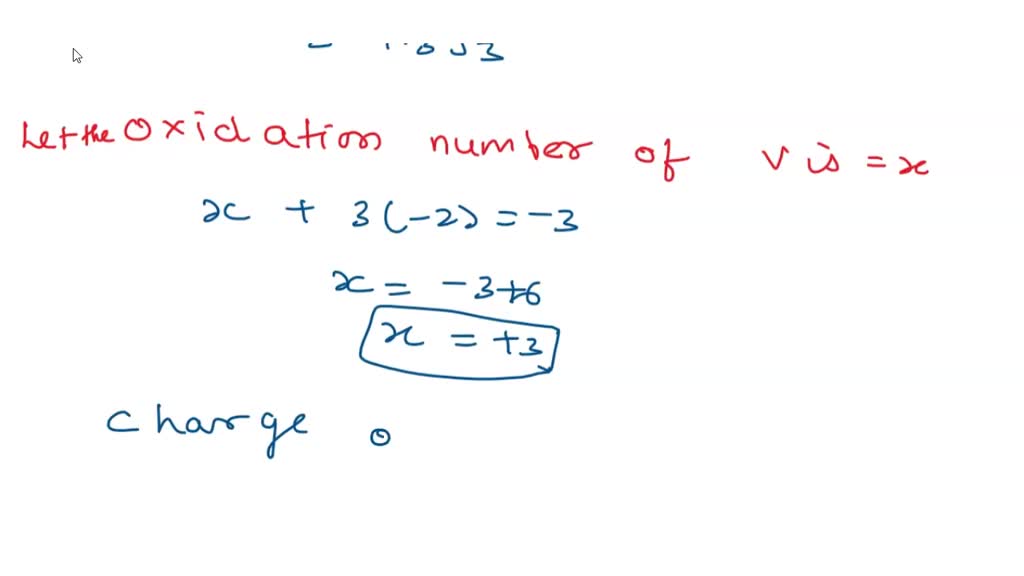 Let the Oxidation number of V is = x
x + 3(-2) = -3
x = -3+6
x = +3
Charge o